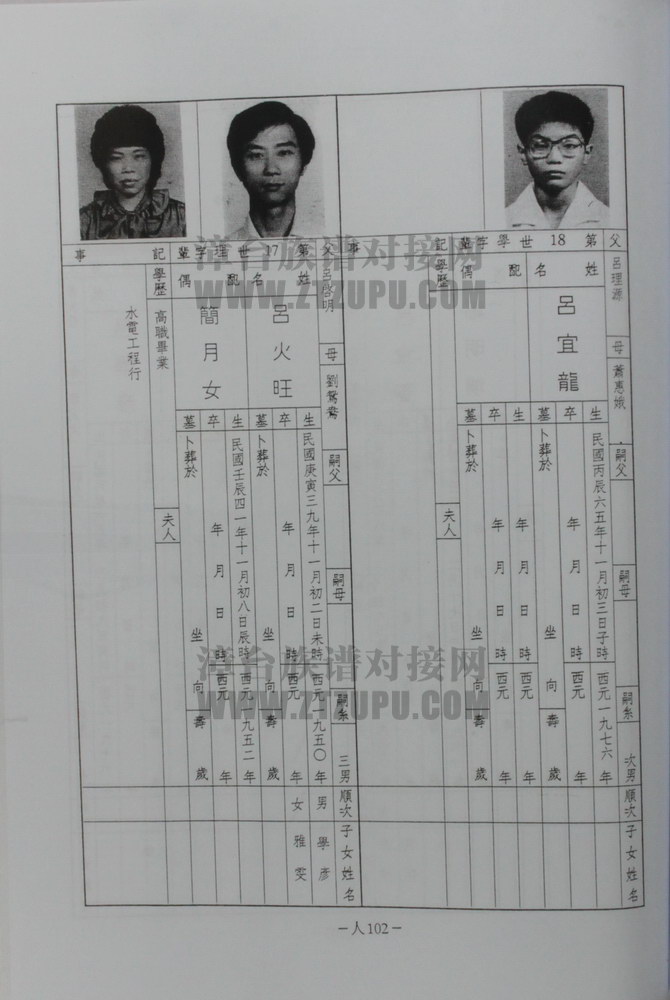 父 呂理源 母 蕭惠娥 嗣父 嗣母 嗣系 次男 順次 子女姓名
第18世學字輩
姓名 呂宜龍
配偶
生 民國丙辰六五年十一月初三日子時 西元一九七六年
卒 年月日時 西元 年
墓 卜葬於 坐 向 壽 歲
生 年月日時 西元 年
卒 年月日時 西元 年
墓 卜葬於 坐 向 壽 歲
記事
學歷
夫人
父 呂啓明 母 劉鴛鴦 嗣父 嗣母 嗣系 三男 順次 子女姓名
第17世理字輩
姓名 呂火旺
配偶 簡月女
生 民國庚寅三九年十一月初二日未時 西元一九五〇年 男 學彥
卒 年月日時 西元 年 女 雅雯
墓 卜葬於 坐 向 壽 歲
生 民國壬辰四一年十一月初八日辰時 西元一九五二年
卒 年月日時 西元 年
墓 卜葬於 坐 向 壽 歲
記事
學歷 高職畢業
夫人
水電工程行
漳台族谱对接网
WWW.ZTZUPU.COM
漳台族谱对接网
WWW.ZTZUPU.COM
－人102－